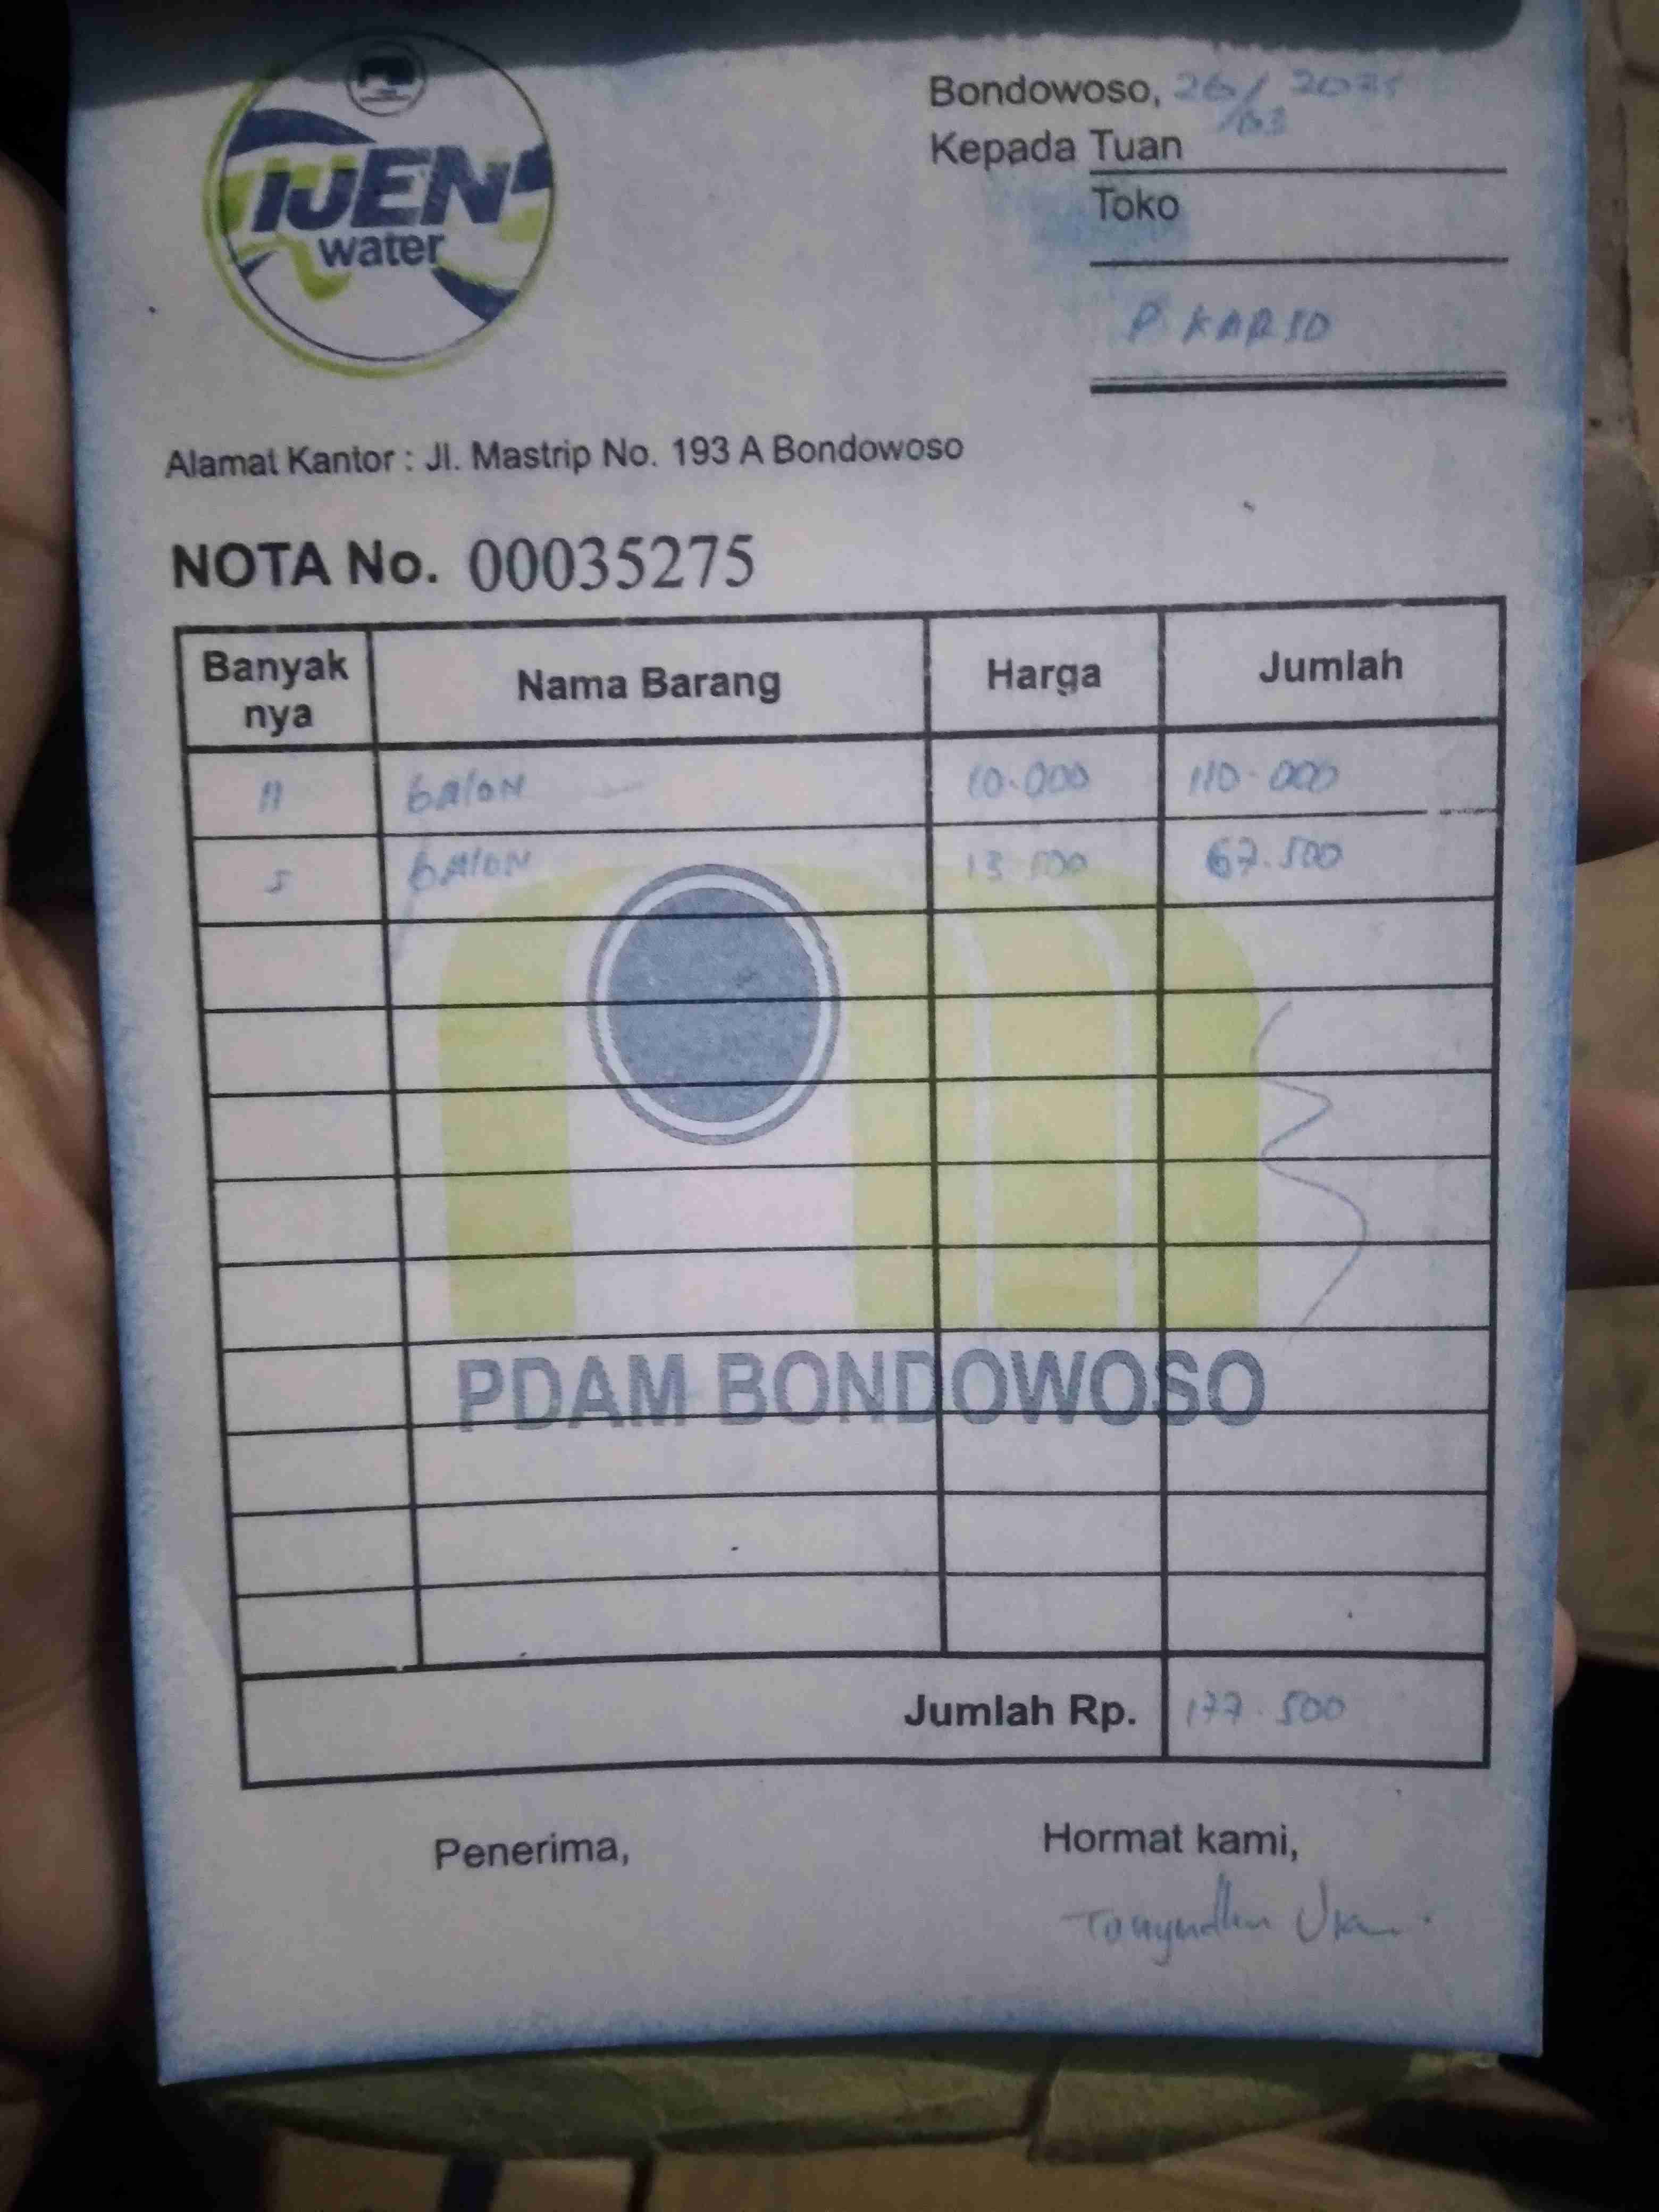 IJEN
water
Bondowoso, 26/03 2025
Kepada Tuan
Toko
P KARSO
Alamat Kantor : Jl. Mastrip No. 193 A Bondowoso
NOTA No. 00035275
Banyak nya Nama Barang Harga Jumlah
11 GAlON 10.000 110.000
5 GAlON 13.500 67.500
PDAM BONDOWOSO
Jumlah Rp. 177.500
Penerima, Hormat kami,